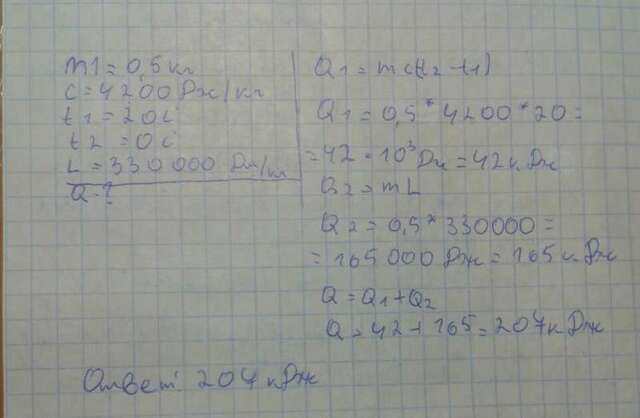 m1 = 0,5 кг
c = 4200 Дж/кг
t1 = 20 c
t2 = 0 c
L = 330 000 Дж/кг
Q - ?
Q1 = mc(t2 - t1)
Q1 = 0,5 * 4200 * 20 =
= 42 * 10³ Дж = 42 кДж
Q2 = mL
Q2 = 0,5 * 330000 =
= 165 000 Дж = 165 кДж
Q = Q1 + Q2
Q = 42 + 165 = 207 кДж
Ответ: 207 кДж